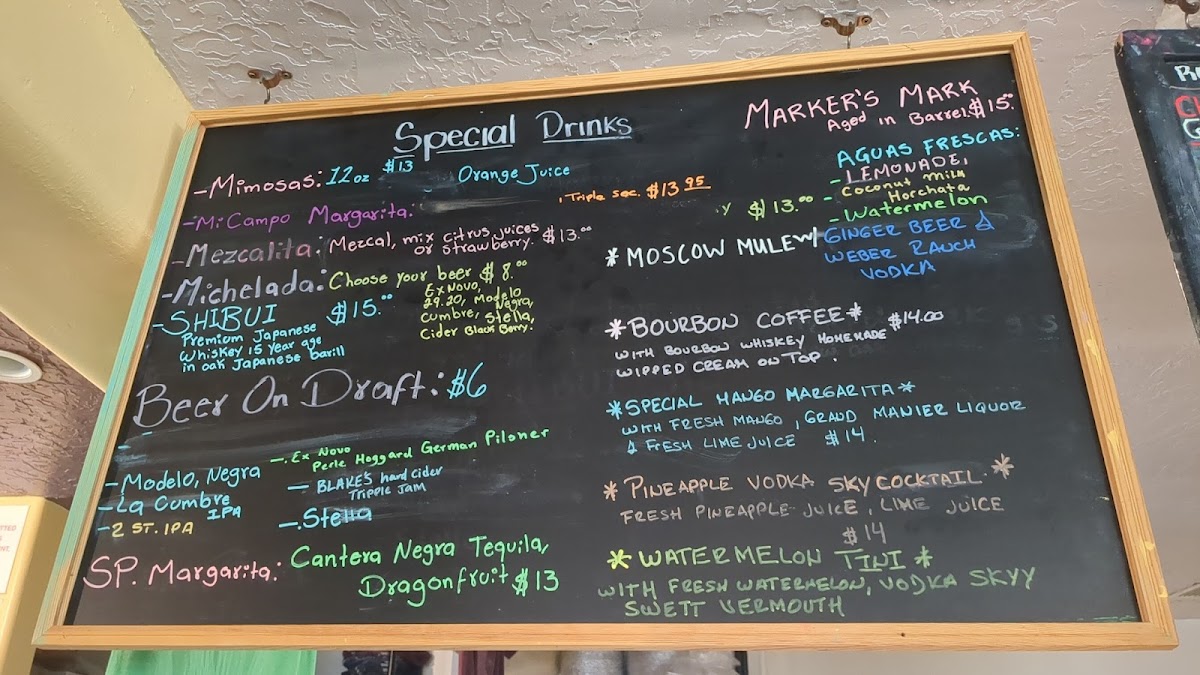 Special Drinks
-Mimosas: 12oz $13 Orange Juice
-Mi Campo Margarita. , Triple sec. $13 95
-Mezcalita: Mezcal, mix citrus juices
or strawberry. $13.00
-Michelada: Choose your beer $8.00
Ex Novo,
29.20, Modelo
Negra,
Cumbre, Stella,
Cider Black Berry.
-SHIBUI $15.00
Premium Japanese
Whiskey 15 year age
in oak Japanese barill
Beer On Draft: $6
-Modelo, Negra
-La Cumbre
IPA
-2 ST. IPA
-. Ex Novo
Perle Haggard German Pilsner
- BLAKE'S hard cider
Tripple Jam
-. Stella
SP. Margarita: Cantera Negra Tequila,
Dragonfruit $13
MARKER'S MARK
Aged in Barrel $15.00
y $13.00
AGUAS FRESCAS:
- LEMONADE,
- Coconut Milk
Horchata
- Watermelon
*MOSCOW MULE W/ GINGER BEER &
WEBER RANCH
VODKA
*BOURBON COFFEE* $14.00
WITH BOURBON WHISKEY HOMEMADE
WIPPED CREAM ON TOP.
*SPECIAL MANGO MARGARITA*
WITH FRESH MANGO, GRAND MANIER LIQUOR
& FRESH LIME JUICE $14.
*PINEAPPLE VODKA SKY COCKTAIL*
FRESH PINEAPPLE JUICE, LIME JUICE
$14
*WATERMELON TINI*
WITH FRESH WATERMELON, VODKA SKYY
SWETT VERMOUTH